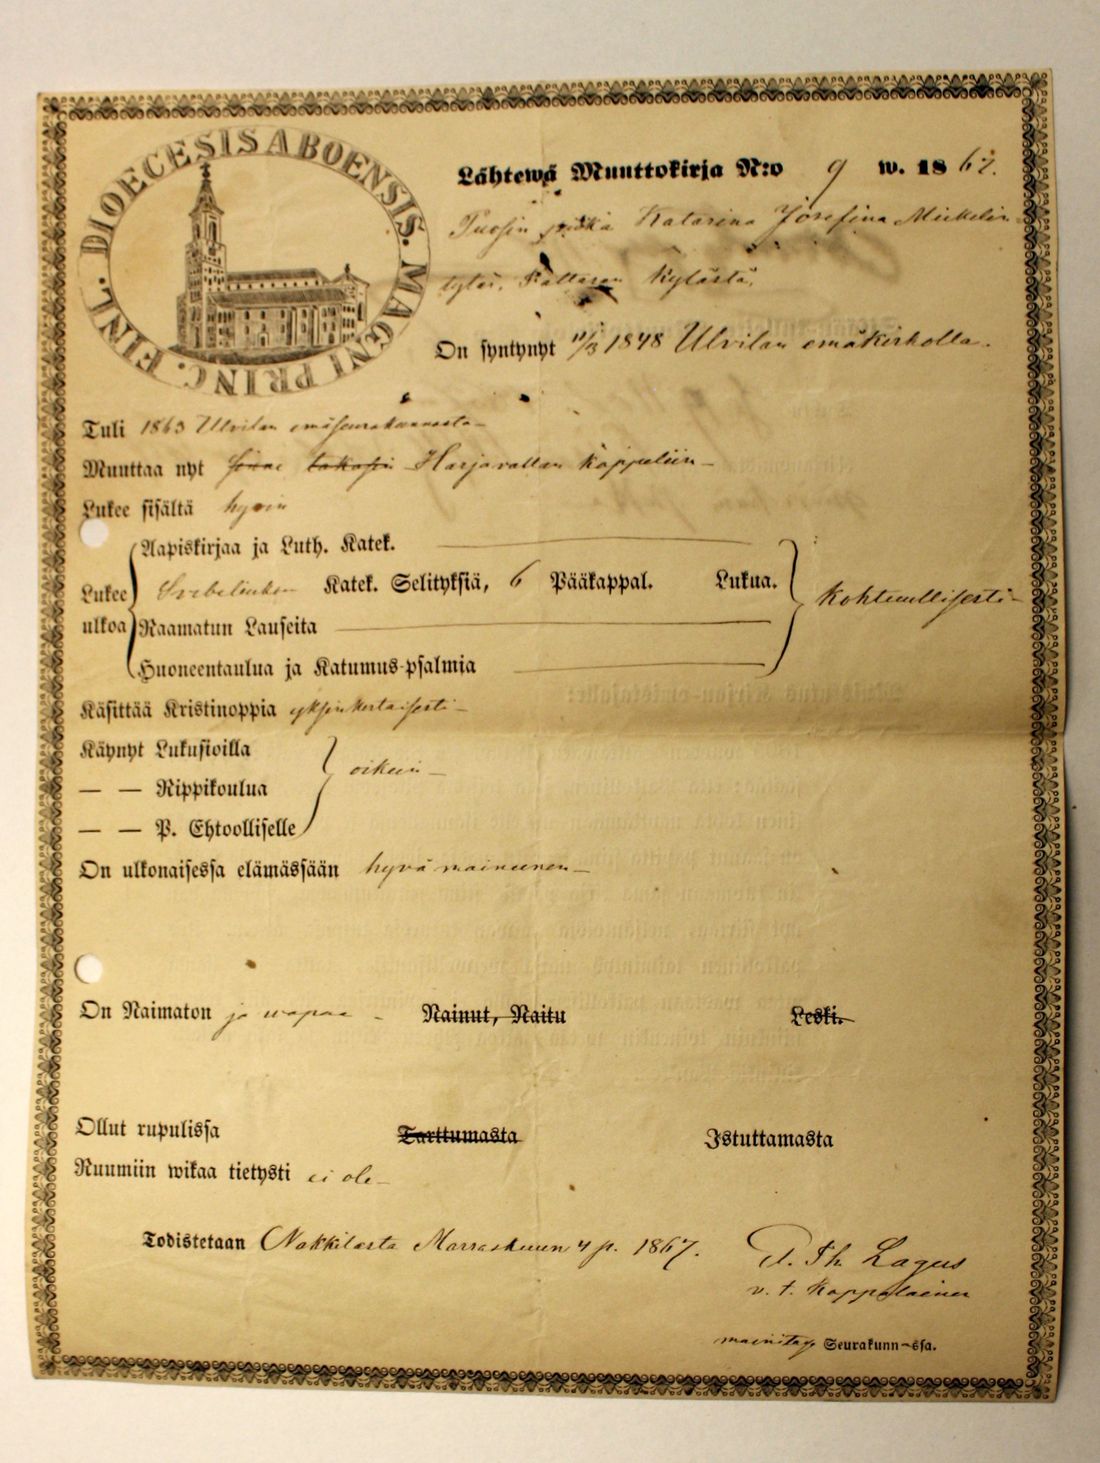 DIOECESIS ABOENSIS. MAGNI PRINC. FINL.
Lähtewä Muuttokirja N:o 9 w. 1867.
piika Katarina Josefina Mickelin
tytär, Kylästä,
On syntynyt 11/3 1848 Ulvilan emäkirkolla.
Tuli 1863 Ulvilan emäseurakunnasta
Muuttaa nyt sinne takasin Harjavallan kappeliin
Lukee sisältä hyvin
Aapiskirjaa ja Luth. Katek.
Lukee ulkoa
Svebeliuksen Katek. Selityksiä, 6 Pääkappal. Lukua. kohtuullisesti
Raamatun Lauseita
Huoneentaulua ja Katumus-psalmia
Käsittää Kristinoppia yksinkertaisesti
Käynyt Lukusioilla
— — Rippikoulua oikein
— — P. Ehtoolliselle
On ulkonaisessa elämässään hyvä maineinen
On Naimaton ja wapaa Nainut, Naitu Leski.
Ollut rupulissa Tarttumasta Istuttamasta
Ruumiin wikaa tietysti ei ole
Todistetaan Nakkilasta Marraskuun 4 p. 1867.
Th. Lagus
v. t. Kappalainen
mainitus Seurakunn-ssa.